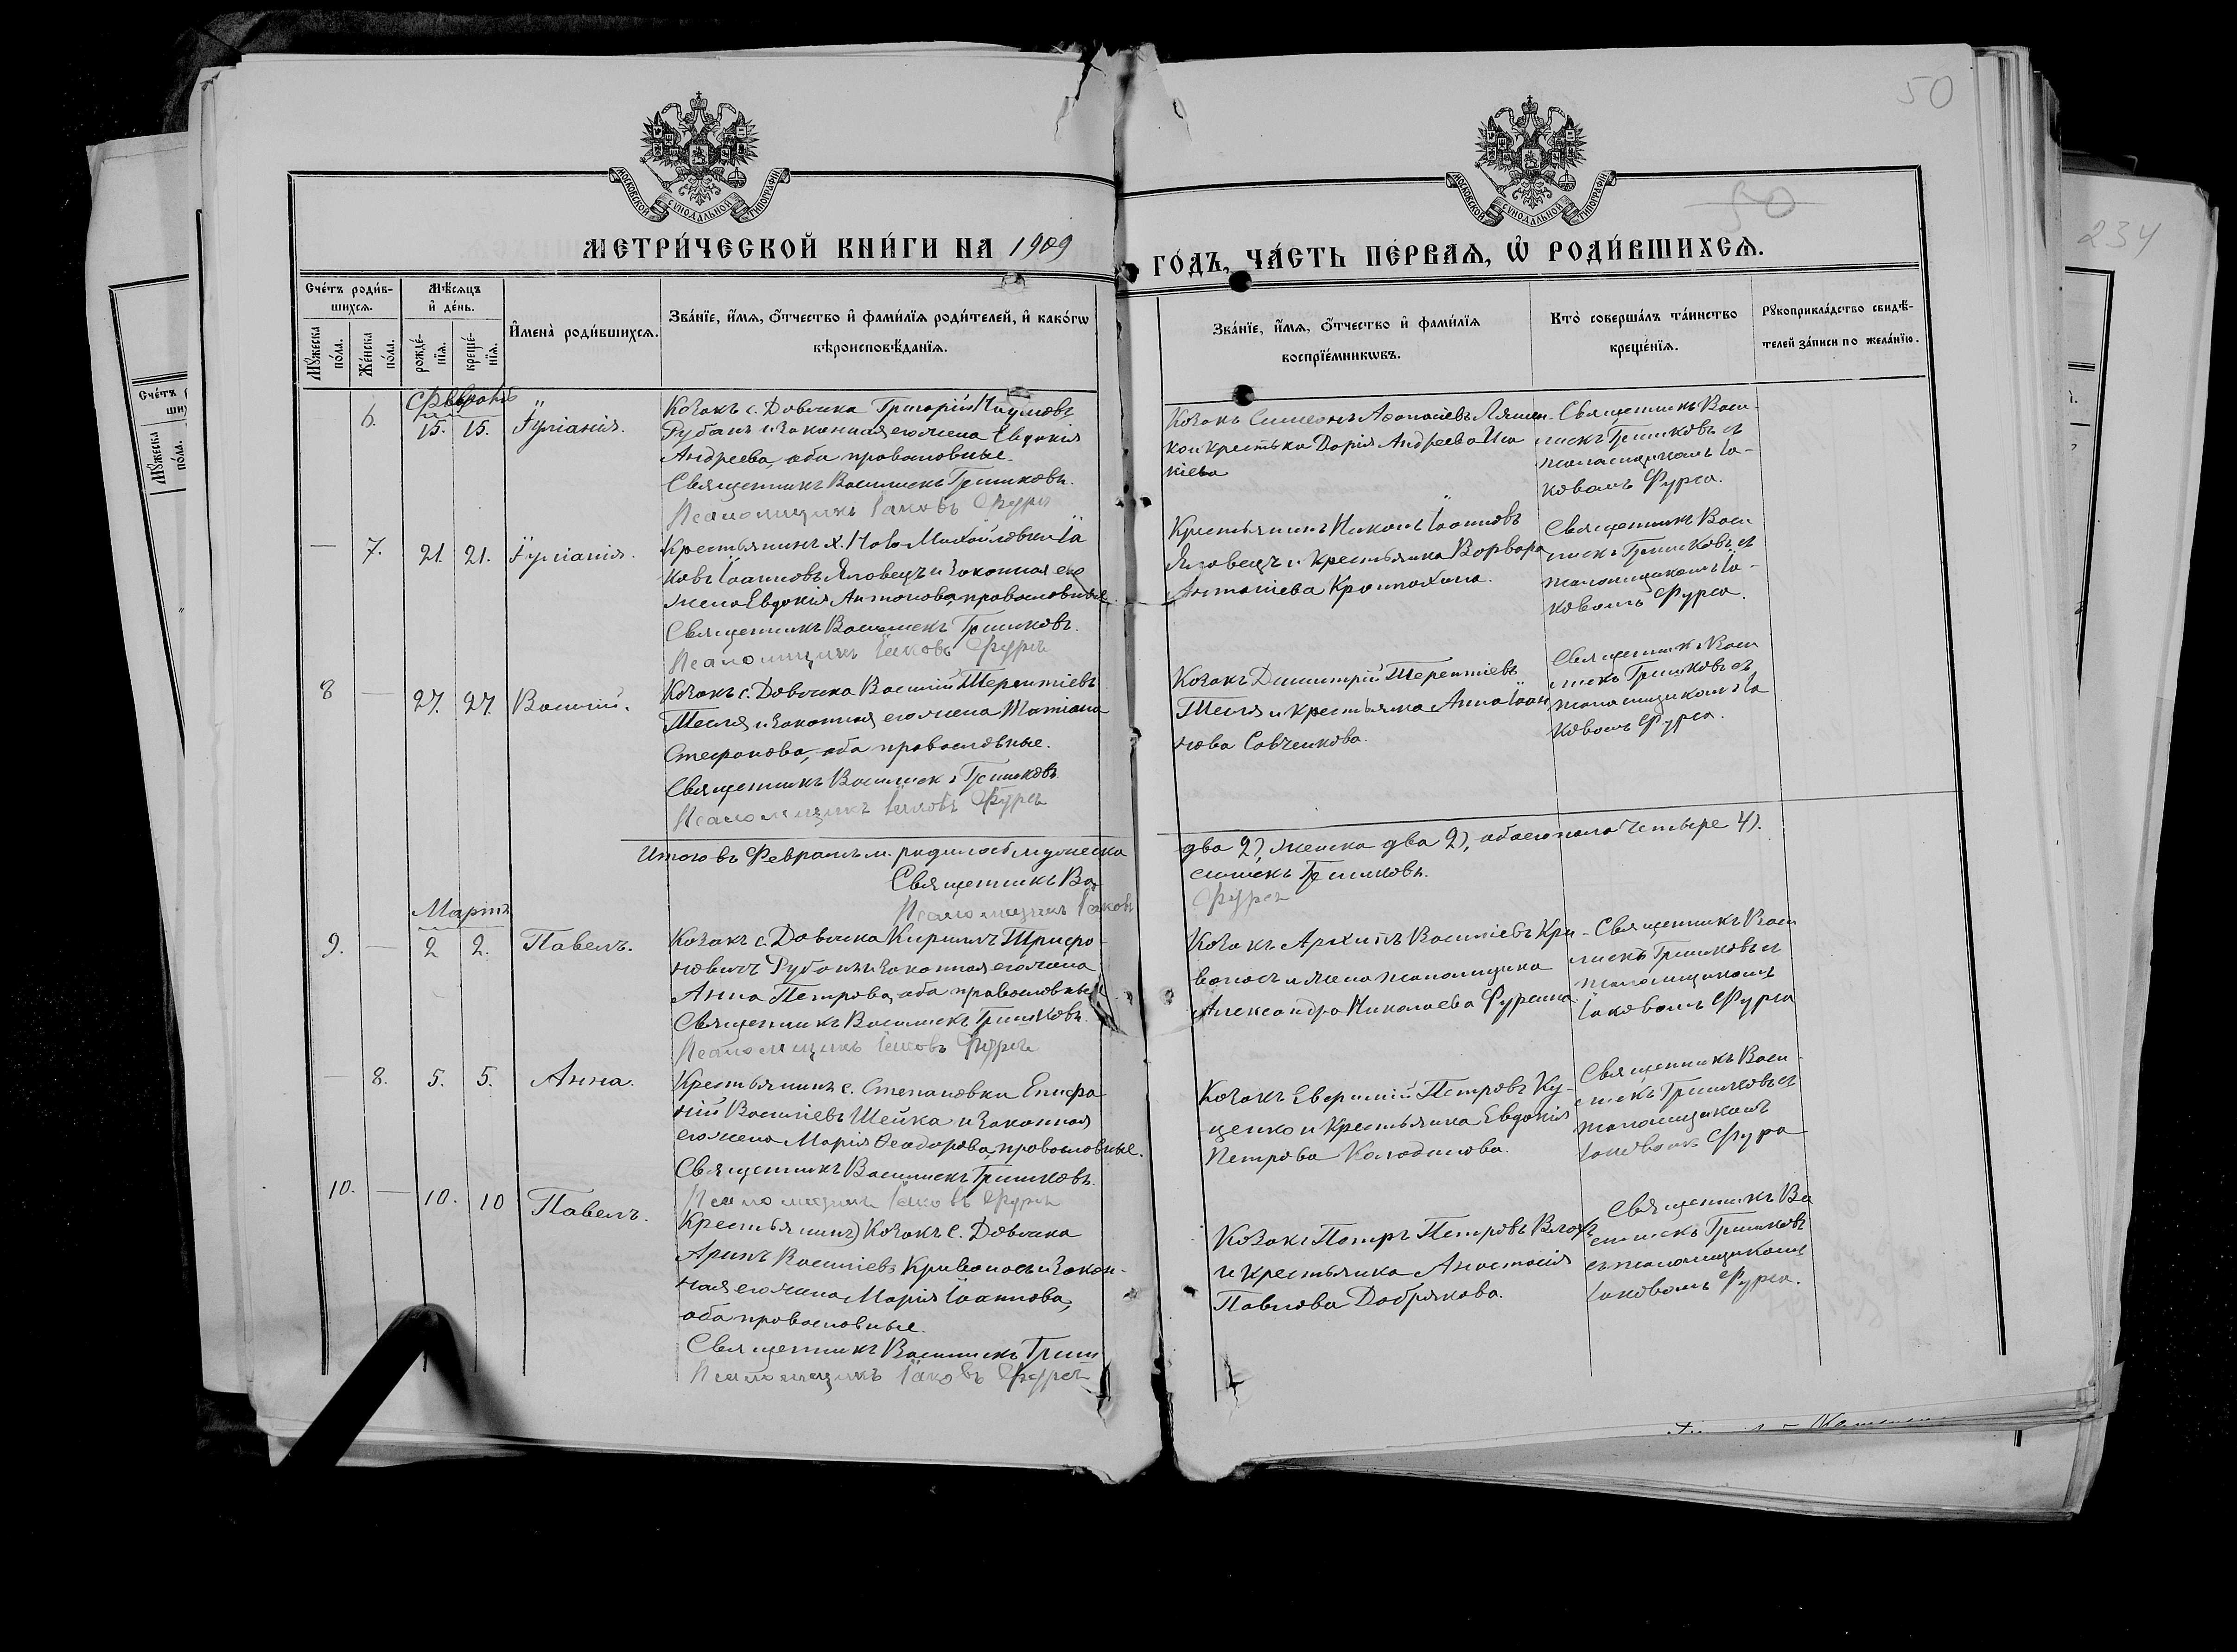 50
50
234
МОСКОВСКОЙ СУНОДАЛЬНОЙ ТИПОГРАФІИ
МОСКОВСКОЙ СУНОДАЛЬНОЙ ТИПОГРАФІИ
МЕТРИ́ЧЕСКОЙ КНИ́ГИ НА 1909
ГО́ДЪ, ЧА́СТЬ ПЕ́РВАѦ, Ѡ҆ РОДИ́ВШИХСѦ.
Сче́тъ роди́в-
шихсѧ.
Мѣ́сѧцъ
и҆ де́нь.
Мꙋ́жеска по́ла.
Же́нска по́ла.
рожде́-
нїѧ.
креще́-
нїѧ.
И҆мена̀ роди́вшихсѧ.
Зва́нїе, и҆́мѧ, о҆́тчество и҆ фами́лїѧ роди́телей, и҆ како́гѡ
вѣроисповѣ́данїѧ.
Зва́нїе, и҆́мѧ, о҆́тчество и҆ фами́лїѧ
воспрїе́мникѡвъ.
Кто̀ соверша́лъ та́инство
креще́нїѧ.
Рꙋкоприкла́дство свидѣ́-
телей за́писи по жела́нїю.
Февраль
6.
15. 15.
Іуліанія.
Козакъ с. Довжика Григорій Наумовъ
Рубанъ и законная его жена Евдокія
Андреева, оба православные.
Священникъ Василискъ Гришковъ.
Псаломщикъ Іаковъ Фурса
Козакъ Симеонъ Аѳанасіевъ Ляшен-
ко и крестьянка Дарія Андреева
Священникъ Васи-
лискъ Гришковъ съ
псаломщикомъ Іа-
ковомъ Фурса.
— 7. 21. 21. Іуліанія.
Крестьянинъ х. Ново-Михайловки Іа
ковъ Іоанновъ Яловецъ и законная его
жена Евдокія Антонова, православные.
Священникъ Василискъ Гришковъ.
Псаломщикъ Іаковъ Фурса
Крестьянинъ Іоанновъ
Яловецъ и крестьянка Варвара
Антоніева
Священникъ Васи
лискъ Гришковъ съ
псаломщикомъ Іа-
ковомъ Фурса.
8 — 27. 27. Василій.
Козакъ с. Довжика Василій Терентіевъ
Тесля и законная его жена Татіана
Стефанова, оба православные.
Священникъ Василискъ Гришковъ
Псаломщикъ Іаковъ Фурса
Козакъ Димитрій Терентіевъ
Тесля и крестьянка Анна Іоан
нова Савченкова.
Священникъ Васи
лискъ Гришковъ съ
псаломщикомъ Іа
ковомъ Фурса.
Итого въ Февралѣ м. родилось мужеска
два 2), женска два 2), обоего пола четыре 4).
Священникъ Ва
силискъ Гришковъ.
Псаломщикъ Іаковъ
Фурса
Мартъ
9. — 2 2. Павелъ.
Козакъ с. Довжика Кириллъ Трифо-
новичъ Рубанъ и законная его жена
Анна Петрова, оба православные
Священникъ Василискъ Гришковъ.
Псаломщикъ Іаковъ Фурса
Козакъ Архипъ Василіевъ Кри-
воносъ и жена псаломщика
Александра Николаева Фурсина.
Священникъ Васи
лискъ Гришковъ съ
псаломщикомъ
Іаковомъ Фурса
— 8. 5. 5. Анна.
Крестьянинъ с. Степановки Епифа
ній Василіевъ Шейка и законная
его жена Марія Ѳеодорова, православные.
Священникъ Василискъ Гришковъ.
Псаломщикъ Іаковъ Фурса
Козакъ Евфимій Петровъ Ку-
ценко и крестьянка Евдокія
Петрова
Священникъ Васи-
лискъ Гришковъ съ
псаломщикомъ
Іаковомъ Фурса
10. — 10. 10 Павелъ.
Крестьянинъ) Козакъ с. Довжика
Василіевъ Кривоносъ и закон-
ная его жена Марія Іоаннова,
оба православные.
Священникъ Василискъ Гриш
Псаломщикъ Іаковъ Фурса
Козакъ Петръ Петровъ
и крестьянка Анастасія
Павлова Добрякова.
Священникъ Ва
силискъ Гришковъ
съ псаломщикомъ
Іаковомъ Фурса.